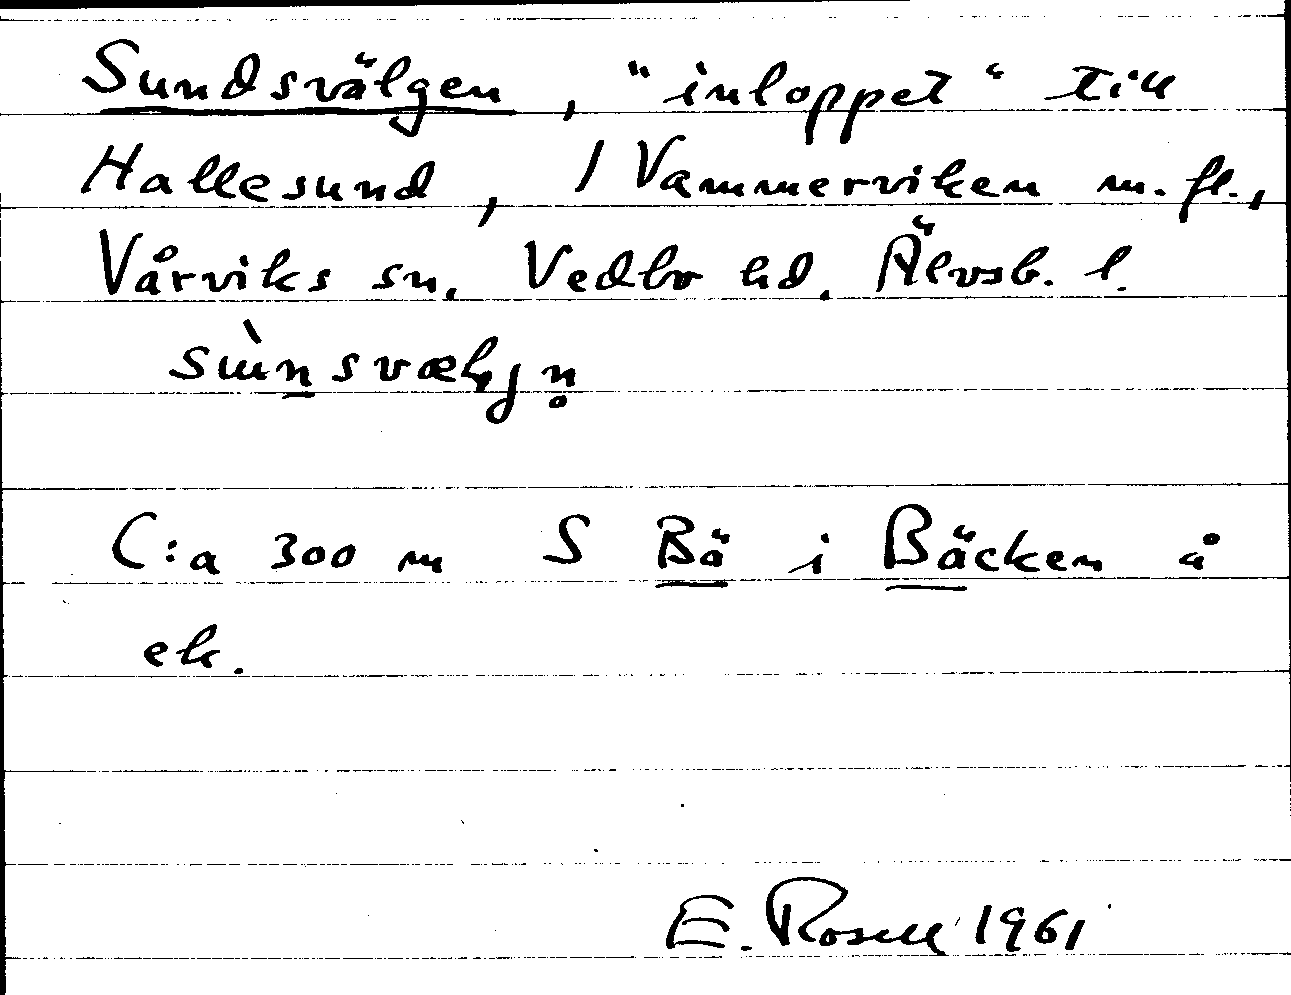 Sundsvälgen, "inloppet" till
Hallesund, / Vammerviken m. fl.,
Vårviks sn. Vedbo hd. Älvsb. l.
C:a 300 m S Bä i Bäcken å
ek.
E. Rosell 1961